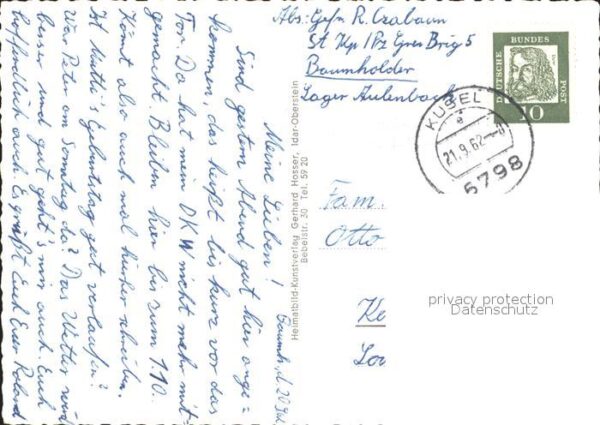 Abs: Gefr R. Czabaun
St Kp/Pz Gren Brig 5
Baumholder
Lager Aulenbach
DEUTSCHE BUNDES POST
10
KUSEL
a
21.9.62
5798
Fam.
Otto
privacy protection
Datenschutz
Heimatbild-Kunstverlag Gerhard Hosser, Idar-Oberstein
Bebelstr. 30 Tel. 59 20
Baumh, d 20
Meine Lieben!
Sind gestern Abend gut hier ange=
kommen, das heißt bis kurz vor das
Tor. Da hat mein DKW nicht mehr mit
gemacht. Bleiben hier bis zum 1.10.
Könnt also auch mal hierher schreiben.
Ist Mutti's Geburtstag gut verlaufen?
War Peter am Sonntag da? Das Wetter wird
besser und gut geht's mir auch. Euch
hoffentlich auch. Es grüßt Euch Euer Roland